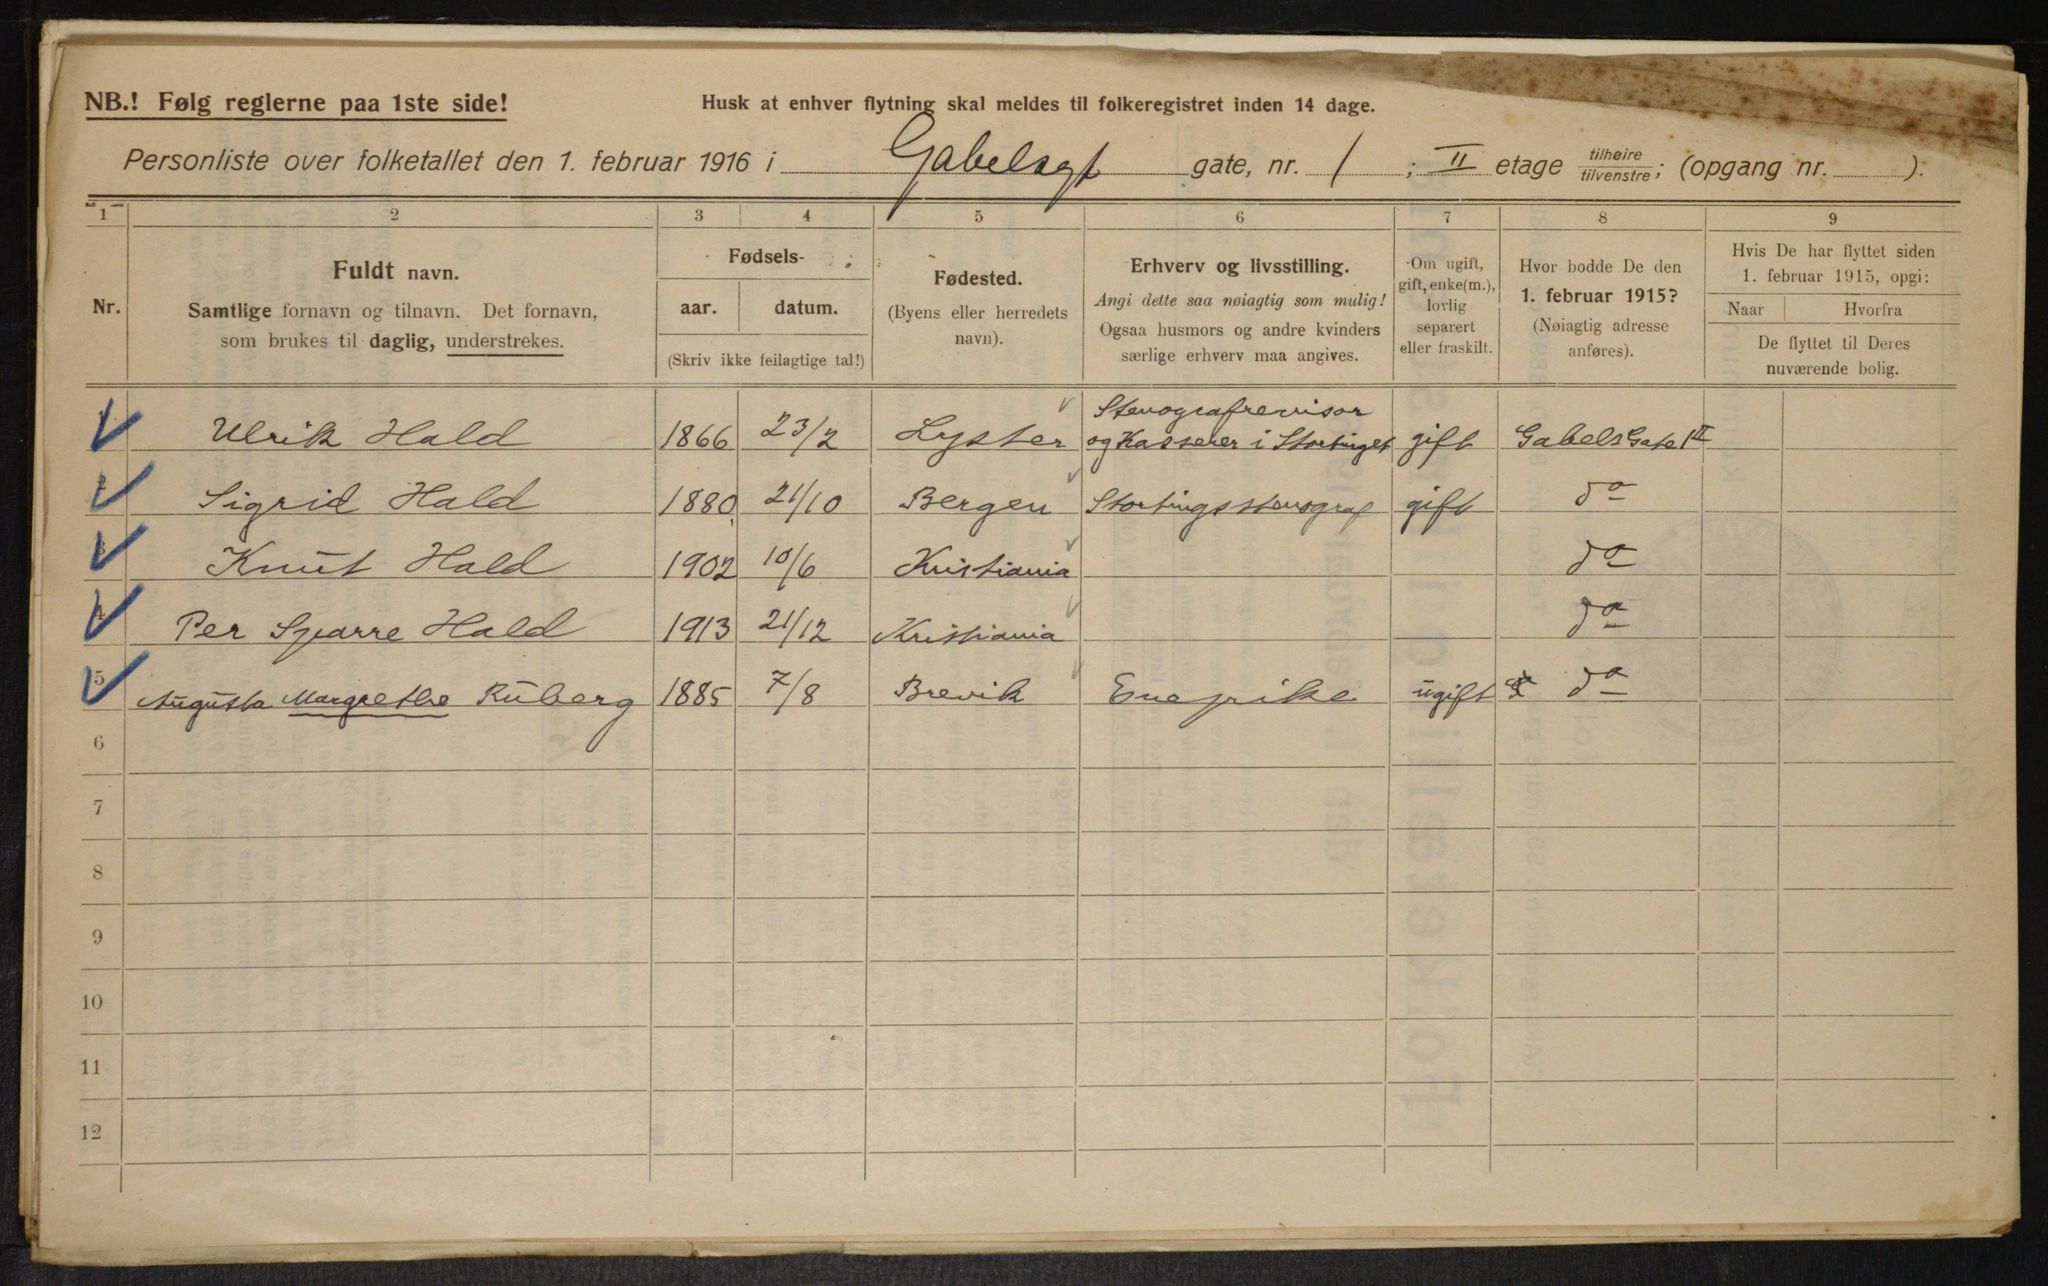 NB.! Følg reglerne paa 1ste side!
Husk at enhver flytning skal meldes til folkeregistret inden 14 dage.
Personliste over folketallet den 1. februar 1916 i Gabelsgt gate, nr. 1 ; II etage tilhøire tilvenstre ; (opgang nr. ).
1 2 3 4 5 6 7 8 9
Nr.
Fuldt navn.
Samtlige fornavn og tilnavn. Det fornavn,
som brukes til daglig, understrekes.
Fødsels-
aar. datum.
(Skriv ikke feilagtige tal!)
Fødested.
(Byens eller herredets
navn).
Erhverv og livsstilling.
Angi dette saa nøiagtig som mulig!
Ogsaa husmors og andre kvinders
særlige erhverv maa angives.
Om ugift,
gift, enke(m.),
lovlig
separert
eller fraskilt.
Hvor bodde De den
1. februar 1915?
(Nøiagtig adresse
anføres).
Hvis De har flyttet siden
1. februar 1915, opgi:
Naar Hvorfra
De flyttet til Deres
nuværende bolig.
1 Ulrik Hald 1866 23/2 Lyster Stenografrevisor og Kasserer i Stortinget gift Gabels Gate 1 II
2 Sigrid Hald 1880 21/10 Bergen Stortingsstenograf gift do
3 Knut Hald 1902 10/6 Kristiania do
4 Per Sparre Hald 1913 21/12 Kristiania do
5 Augusta Margrethe Ruberg 1885 7/8 Brevik Enepike ugift do
6
7
8
9
10
11
12